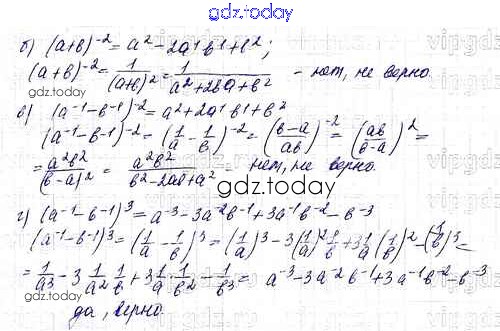 gdz.today
б) (a+b)^-2 = a^2 - 2a^1b^1 + b^2;
(a+b)^-2 = 1/(a+b)^2 = 1/(a^2+2ba+b^2) - нет, не верно.
gdz.today
в) (a^-1 - b^-1)^-2 = a^2 + 2a^1b^1 + b^2
(a^-1 - b^-1)^-2 = (1/a - 1/b)^-2 = ((b-a)/ab)^-2 = (ab/(b-a))^2 =
= a^2b^2/(b-a)^2 = a^2b^2/(b^2-2ab+a^2) = нет, не верно.
gdz.today
г) (a^-1 - b^-1)^3 = a^-3 - 3a^-2b^-1 + 3a^-1b^-2 - b^-3
(a^-1 - b^-1)^3 = (1/a - 1/b)^3 = (1/a)^3 - 3(1/a)^2 1/b + 3 1/a (1/b)^2 - (1/b)^3 =
= 1/a^3 - 3 1/a^2 · 1/b + 3 1/a · 1/b^2 - 1/b^3 = a^-3 - 3a^-2b^-1 + 3a^-1b^-2 - b^-3
gdz.today
да, верно.